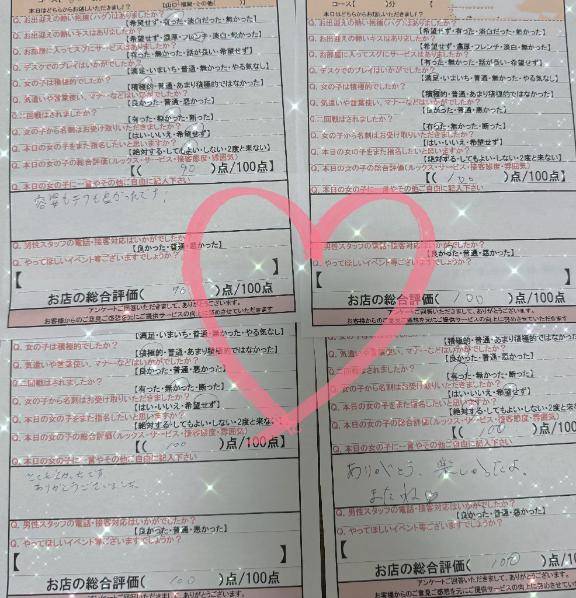 本日はどちらからお越しいただけますか？
Q. お出迎えの熱い抱擁(ハグ)はありましたか？
【希望せず・有った・淡白だった・無かった】
Q. お出迎えの熱いキスはありましたか？
【希望せず・濃厚・フレンチ・淡白・無かった】
Q. お部屋に入ってスグにサービスはありましたか？
【有った・無かった・話が良い・希望せず】
Q. デスクでのプレイはいかがでしたか？
【満足・いまいち・普通・無かった・やる気なし】
Q. 女の子は積極的でしたか？
【積極的・普通・あまり積極的ではなかった】
Q. 気遣いや言葉使い、マナーなどはいかがでしたか？
【良かった・普通・悪かった】
Q. 二回戦はされましたか？
【有った・無かった・断った】
Q. 女の子から名刺はお受け取りいただきましたか？
【はい・いいえ・希望せず】
Q. 本日の女の子をまた指名したいと思いますか？
【絶対する・してもよい・しない・2度と来ない】
Q. 本日の女の子の総合評価(ルックス・サービス・接客態度・雰囲気)
【( 90 )点/100点】
Q. 本日の女の子に一言やその他ご自由に記入下さい
Q. 男性スタッフの電話・接客対応はいかがでしたか？
【良かった・普通・悪かった】
Q. やってほしいイベント等ございますでしょうか？
お店の総合評価( 90 )点/100点
アンケートご回答いただきまして、ありがとうございます。
お客様からのご意見ご感想を元にご提供サービスの向上に努めさせていただきます
Q. お出迎えの熱い抱擁(ハグ)はありましたか？
【希望せず・有った・淡白だった・無かった】
Q. お出迎えの熱いキスはありましたか？
【希望せず・濃厚・フレンチ・淡白・無かった】
Q. お部屋に入ってスグにサービスはありましたか？
【有った・無かった・話が良い・希望せず】
Q. デスクでのプレイはいかがでしたか？
【満足・いまいち・普通・無かった・やる気なし】
Q. 女の子は積極的でしたか？
【積極的・普通・あまり積極的ではなかった】
Q. 気遣いや言葉使い、マナーなどはいかがでしたか？
【良かった・普通・悪かった】
Q. 二回戦はされましたか？
【有った・無かった・断った】
Q. 女の子から名刺はお受け取りいただきましたか？
【はい・いいえ・希望せず】
Q. 本日の女の子をまた指名したいと思いますか？
【絶対する・してもよい・しない・2度と来ない】
Q. 本日の女の子の総合評価(ルックス・サービス・接客態度・雰囲気)
【( 100 )点/100点】
Q. 本日の女の子に一言やその他ご自由に記入下さい
Q. 男性スタッフの電話・接客対応はいかがでしたか？
【良かった・普通・悪かった】
Q. やってほしいイベント等ございますでしょうか？
お店の総合評価( 100 )点/100点
アンケートご回答いただきまして、ありがとうございます。
お客様からのご意見ご感想を元にご提供サービスの向上に努めさせていただ
【満足・いまいち・普通・無かった・やる気なし】
Q. 女の子は積極的でしたか？
【積極的・普通・あまり積極的ではなかった】
Q. 気遣いや言葉使い、マナーなどはいかがでしたか？
【良かった・普通・悪かった】
Q. 二回戦はされましたか？
【有った・無かった・断った】
Q. 女の子から名刺はお受け取りいただきましたか？
【はい・いいえ・希望せず】
Q. 本日の女の子をまた指名したいと思いますか？
【絶対する・してもよい・しない・2度と来ない】
Q. 本日の女の子の総合評価(ルックス・サービス・接客態度・雰囲気)
【( 100 )点/100点】
Q. 本日の女の子に一言やその他ご自由に記入下さい
とてもよかったです
ありがとうございました
Q. 男性スタッフの電話・接客対応はいかがでしたか？
【良かった・普通・悪かった】
Q. やってほしいイベント等ございますでしょうか？
お店の総合評価( 100 )点/100点
【積極的・普通・あまり積極的ではなか
Q. 気遣いや言葉使い、マナーなどはいかがでしたか？
【良かった・普通・悪かった】
Q. 二回戦はされましたか？
【有った・無かった・断った】
Q. 女の子から名刺はお受け取りいただきましたか？
【はい・いいえ・希望せず】
Q. 本日の女の子をまた指名したいと思いますか？
【絶対する・してもよい・しない・2度と来
Q. 本日の女の子の総合評価(ルックス・サービス・接客態度・雰囲気)
【( 100 )点/100
Q. 本日の女の子に一言やその他ご自由に記入下さい
ありがとう、楽しめたよ、
またね♡
Q. 男性スタッフの電話・接客対応はいかがでしたか？
【良かった・普通・悪かった】
Q. やってほしいイベント等ございますでしょうか？
お店の総合評価( 100 )点/100点
アンケートご回答いただきまして、ありがとうございます。
お客様からのご意見ご感想を元にご提供サービスの向上に努めさせてい